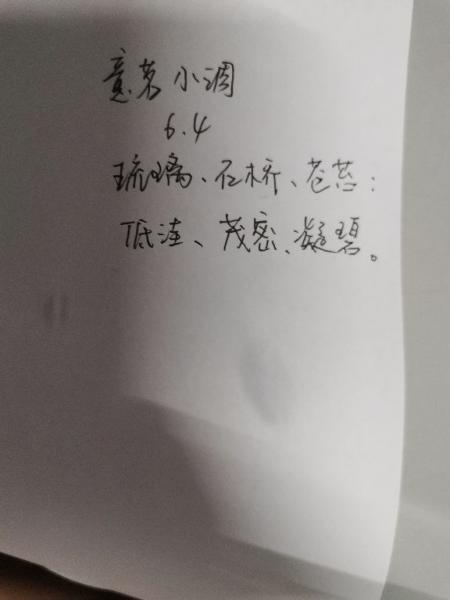 意茗小调
6.4
琉璃、石桥、苍苔:
低洼、茂密、凝碧。